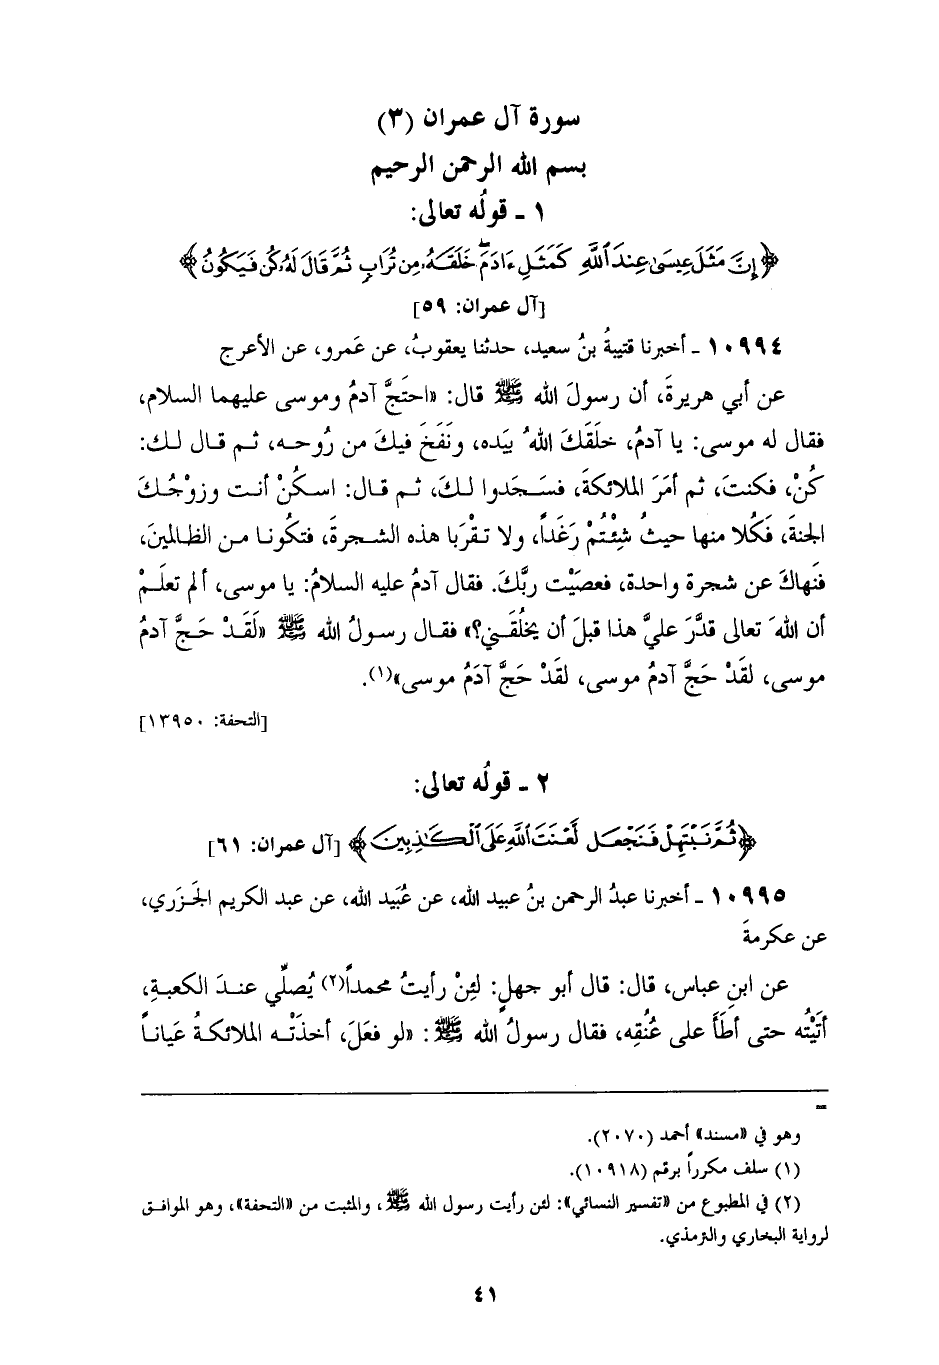 سورة آل عمران (٣)
بسم الله الرحمن الرحيم
١ ـ قولُه تعالى:
﴿إِنَّ مَثَلَ عِيسَىٰ عِندَ ٱللَّهِ كَمَثَلِ ءَادَمَ ۖ خَلَقَهُۥ مِن تُرَابٍ ثُمَّ قَالَ لَهُۥ كُن فَيَكُونُ﴾
[آل عمران: ٥٩]
١٠٩٩٤ ـ أخبرنا قتيبةُ بنُ سعيد، حدثنا يعقوبُ، عن عَمرو، عن الأعرج
عن أبي هريرةَ، أن رسولَ الله ﷺ قال: «احتَجَّ آدمُ وموسى عليهما السلام،
فقال له موسى: يا آدمُ، خلَقَكَ اللهُ بيَده، ونَفَخَ فيكَ من رُوحـه، ثـم قـال لـك:
كُنْ، فكنتَ، ثم أمَرَ الملائكةَ، فسَـجَدوا لـكَ، ثـم قـال: اسـكُنْ أنـت وزوْجُـكَ
الجنةَ، فَكُلا منها حيثُ شِئْتُمْ رَغَداً، ولا تـقْرَبا هذه الشـجرةَ، فتكُونـا مـن الظالمينَ،
فَنهاكَ عن شجرة واحدة، فعصَيْت ربَّكَ. فقال آدمُ عليه السلامُ: يا موسى، ألم تعلَمْ
أن اللهَ تعالى قدَّرَ عليَّ هذا قبلَ أن يخلُقَـني؟» فقـال رسـولُ الله ﷺ «لَقَـدْ حَـجَّ آدمُ
موسى، لقَدْ حَجَّ آدمُ موسى، لقَدْ حَجَّ آدَمُ موسى»(١).
[التحفة: ١٣٩٥٠]
٢ ـ قولُه تعالى:
﴿ثُمَّ نَبْتَهِلْ فَنَجْعَل لَّعْنَتَ ٱللَّهِ عَلَى ٱلْكَـٰذِبِينَ﴾ [آل عمران: ٦١]
١٠٩٩٥ ـ أخبرنا عبدُ الرحمن بنُ عبيد الله، عن عُبَيد الله، عن عبد الكريم الجَـزَري،
عن عكرمةَ
عن ابنِ عباس، قال: قال أبو جهلٍ: لئِنْ رأيتُ محمداً(٢) يُصلِّي عنـدَ الكعبـةِ،
أتَيْتُه حتى أطَأَ على عُنُقِه، فقال رسولُ الله ﷺ: «لو فعَلَ، أخذَتْـه الملائكـةُ عَيانـاً
=
وهو في «مسند» أحمد (٢٠٧٠).
(١) سلف مكرراً برقم (١٠٩١٨).
(٢) في المطبوع من «تفسير النسائي»: لئن رأيت رسول الله ﷺ، والمثبت من «التحفة»، وهو الموافـق
لرواية البخاري والترمذي.
٤١